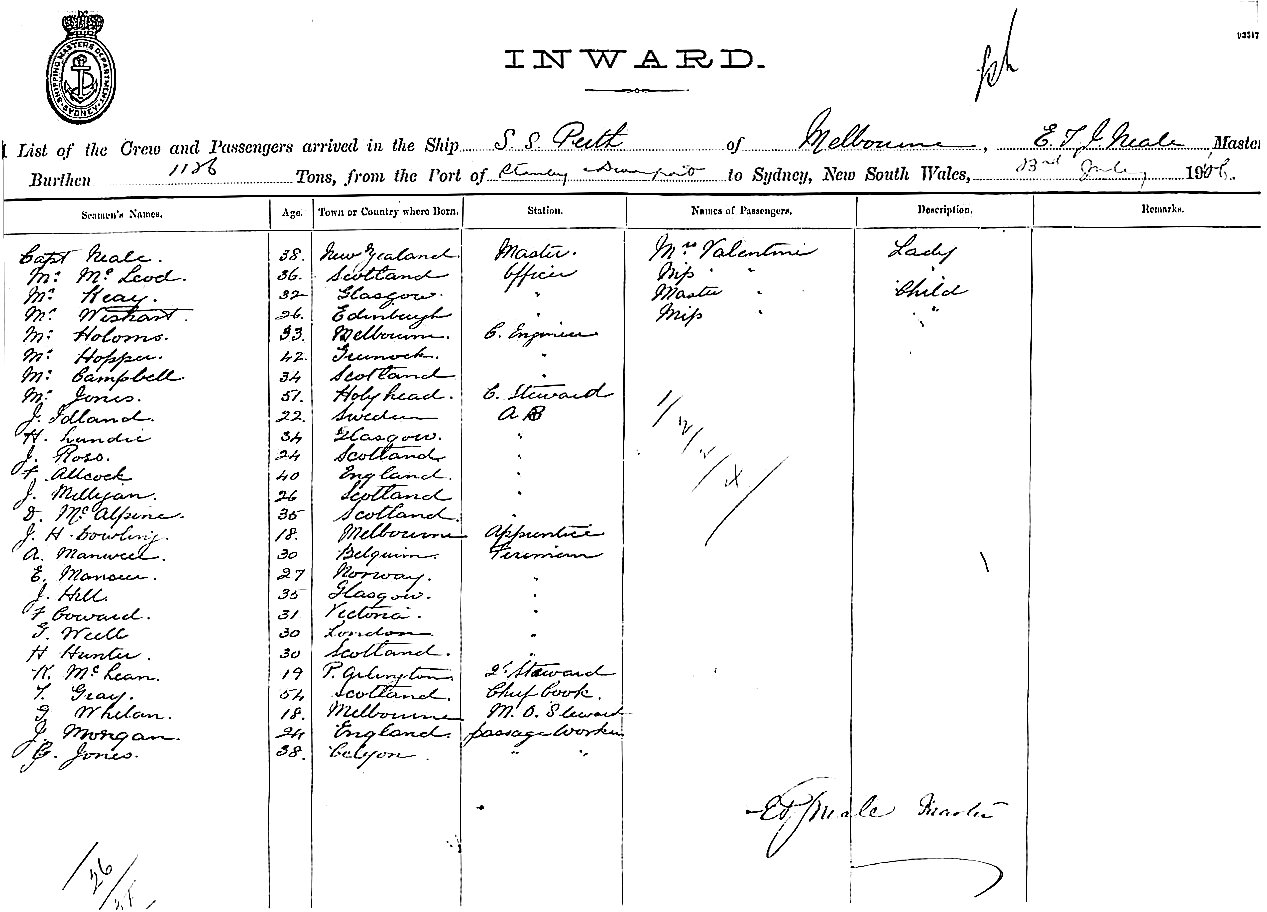 SHIPPING MASTERS DEPARTMENT SYDNEY
INWARD.
List of the Crew and Passengers arrived in the Ship S. S. Perth of Melbourne, E. T. J. Neale, Master
Burthen 1186 Tons, from the Port of Stanley to Sydney, New South Wales, 23rd July 1906.
Seamen's Names. Age. Town or Country where Born. Station. Names of Passengers. Description. Remarks.
Capt Neale. 38. New Zealand Master. Mrs Valentine Lady
Mr McLeod. 36. Scotland Officer Miss " " "
Mr Keay. 32 Glasgow. " Master " Child
Mr Wishart. 26. Edinburgh " Miss " "
Mr Holoms. 33. Melbourne. C. Engineer
Mr Hopper. 42. Greenock. "
Mr Campbell. 34 Scotland "
Mr Jones. 51. Holyhead. C. Steward
J. Idland. 22. Sweden A B
H. Lundie 34 Glasgow. "
J. Ross. 24 Scotland "
F. Allcock 40 England. "
J. Millygan. 26 Scotland "
D. McAlpine. 35 Scotland. "
J. H. Dowling. 18. Melbourne Apprentice
A. Manweel. 30 Belguim. Firemen
E. 27 Norway. "
J. Hill. 35 Glasgow. "
F Coward. 31 Victoria. "
G. Weell 30 London "
H Hunter. 30 Scotland. "
K. McLean. 19 P. Arlington. 2d Steward
T. Gray. 54 Scotland. Chief Cook.
G Whelan. 18. Melbourne M. O. Steward
J. Morgan. 24 England. passage Worker
G. Jones. 38. Celyon. " "
1/2/1/4/
E T J Neale Master
/26/